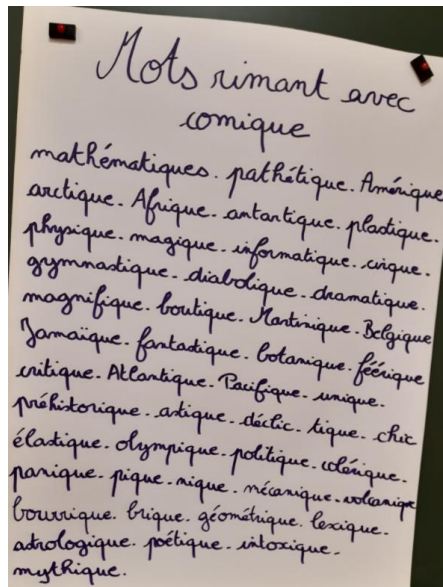 Mots rimant avec
comique
mathématiques. pathétique. Amérique
arctique. Afrique. antartique. plastique.
physique. magique. informatique. cirque.
gymnastique. diabolique. dramatique.
magnifique. boutique. Martinique. Belgique
Jamaïque. fantastique. botanique. féérique
critique. Atlantique. Pacifique. unique.
préhistorique. astique. déclic. tique. chic
élastique. olympique. politique. colérique.
panique. pique. nique. mécanique. volcanique
bourrique. brique. géométrique. lexique.
astrologique. poétique. intoxique.
mythique.